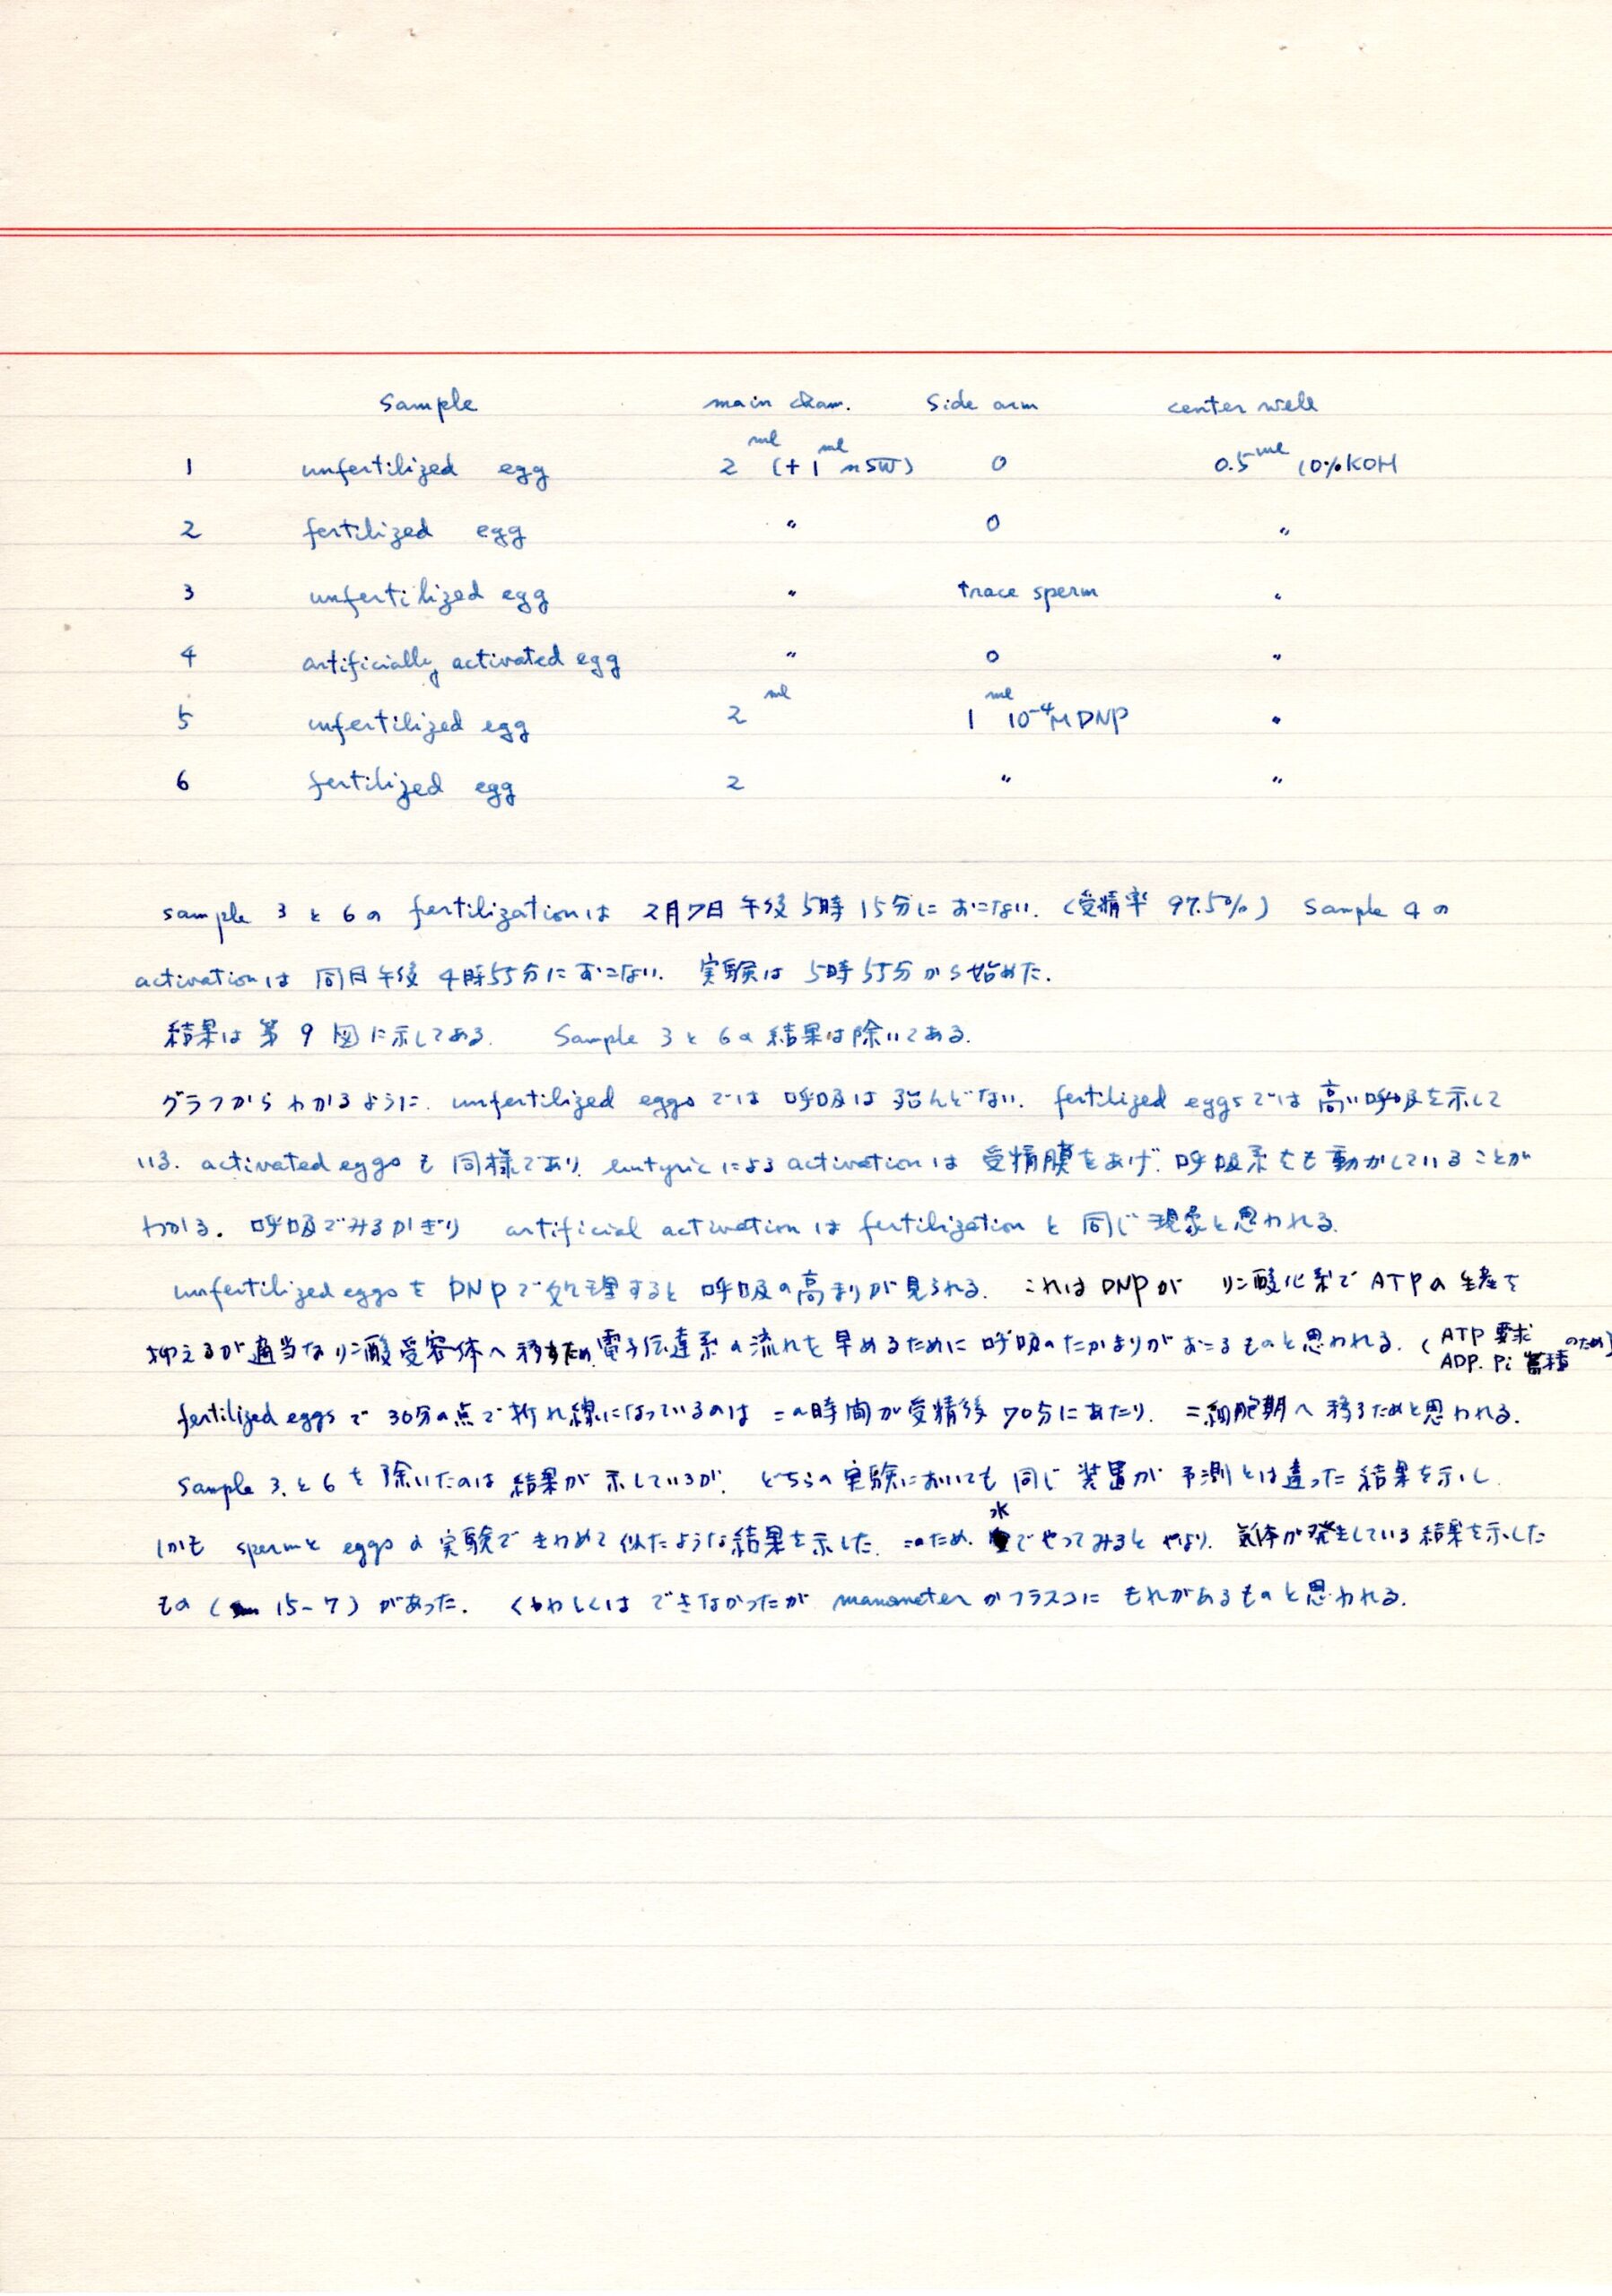 sample main cham. side arm center well
1 unfertilized egg 2ml (+1ml nSW) 0 0.5ml 10%KOH
2 fertilized egg 〃 0 〃
3 unfertilized egg 〃 trace sperm 〃
4 artificially activated egg 〃 0 〃
5 unfertilized egg 2ml 1ml 10⁻⁴M DNP 〃
6 fertilized egg 2 〃 〃
sample 3 と 6の fertilizationは 2月7日 午後5時15分におこない. (受精率 97.5%) Sample 4 の
activationは 同日午後 4時55分におこない. 実験は 5時55分から始めた.
結果は第9図に示してある. Sample 3 と 6の結果は除いてある.
グラフからわかるように. unfertilized eggs では 呼吸は殆んどない. fertilized eggs では 高い呼吸を示して
いる. activated eggs も 同様であり. による activation は 受精膜をあげ. 呼吸系をも動かしていることが
わかる. 呼吸でみるかぎり artificial activation は fertilization と 同じ現象と思われる.
unfertilized eggs を DNP で処理すると 呼吸の高まりが見られる. これは DNP が リン酸化系で ATPの生産を
抑えるが適当なリン酸受容体へ移すため.電子伝達系の流れを早めるために 呼吸のたかまりがおこるものと思われる. (ATP 要求
ADP. Pi 蓄積のため)
fertilized eggs で 30分の点で折れ線になっているのは この時間が受精後 70分にあたり. 二細胞期へ移るためと思われる.
Sample 3. と 6 を除いたのは結果が示しているが. どちらの実験においても同じ装置が予測とは違った結果を示し.
しかも spermと eggs の実験できわめて似たような結果を示した. このため. 水でやってみると やはり. 気体が発生している結果を示した
もの ( 15-7) があった. くわしくはできなかったが manometer かフラスコに もれがあるものと思われる.